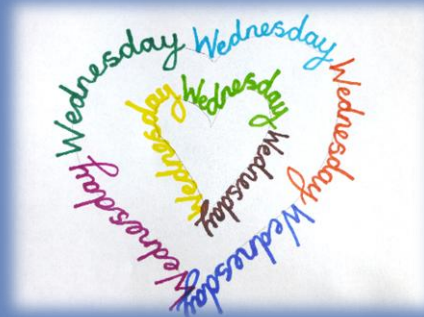 Wednesday
Wednesday
Wednesday
Wednesday
Wednesday
Wednesday
Wednesday
Wednesday